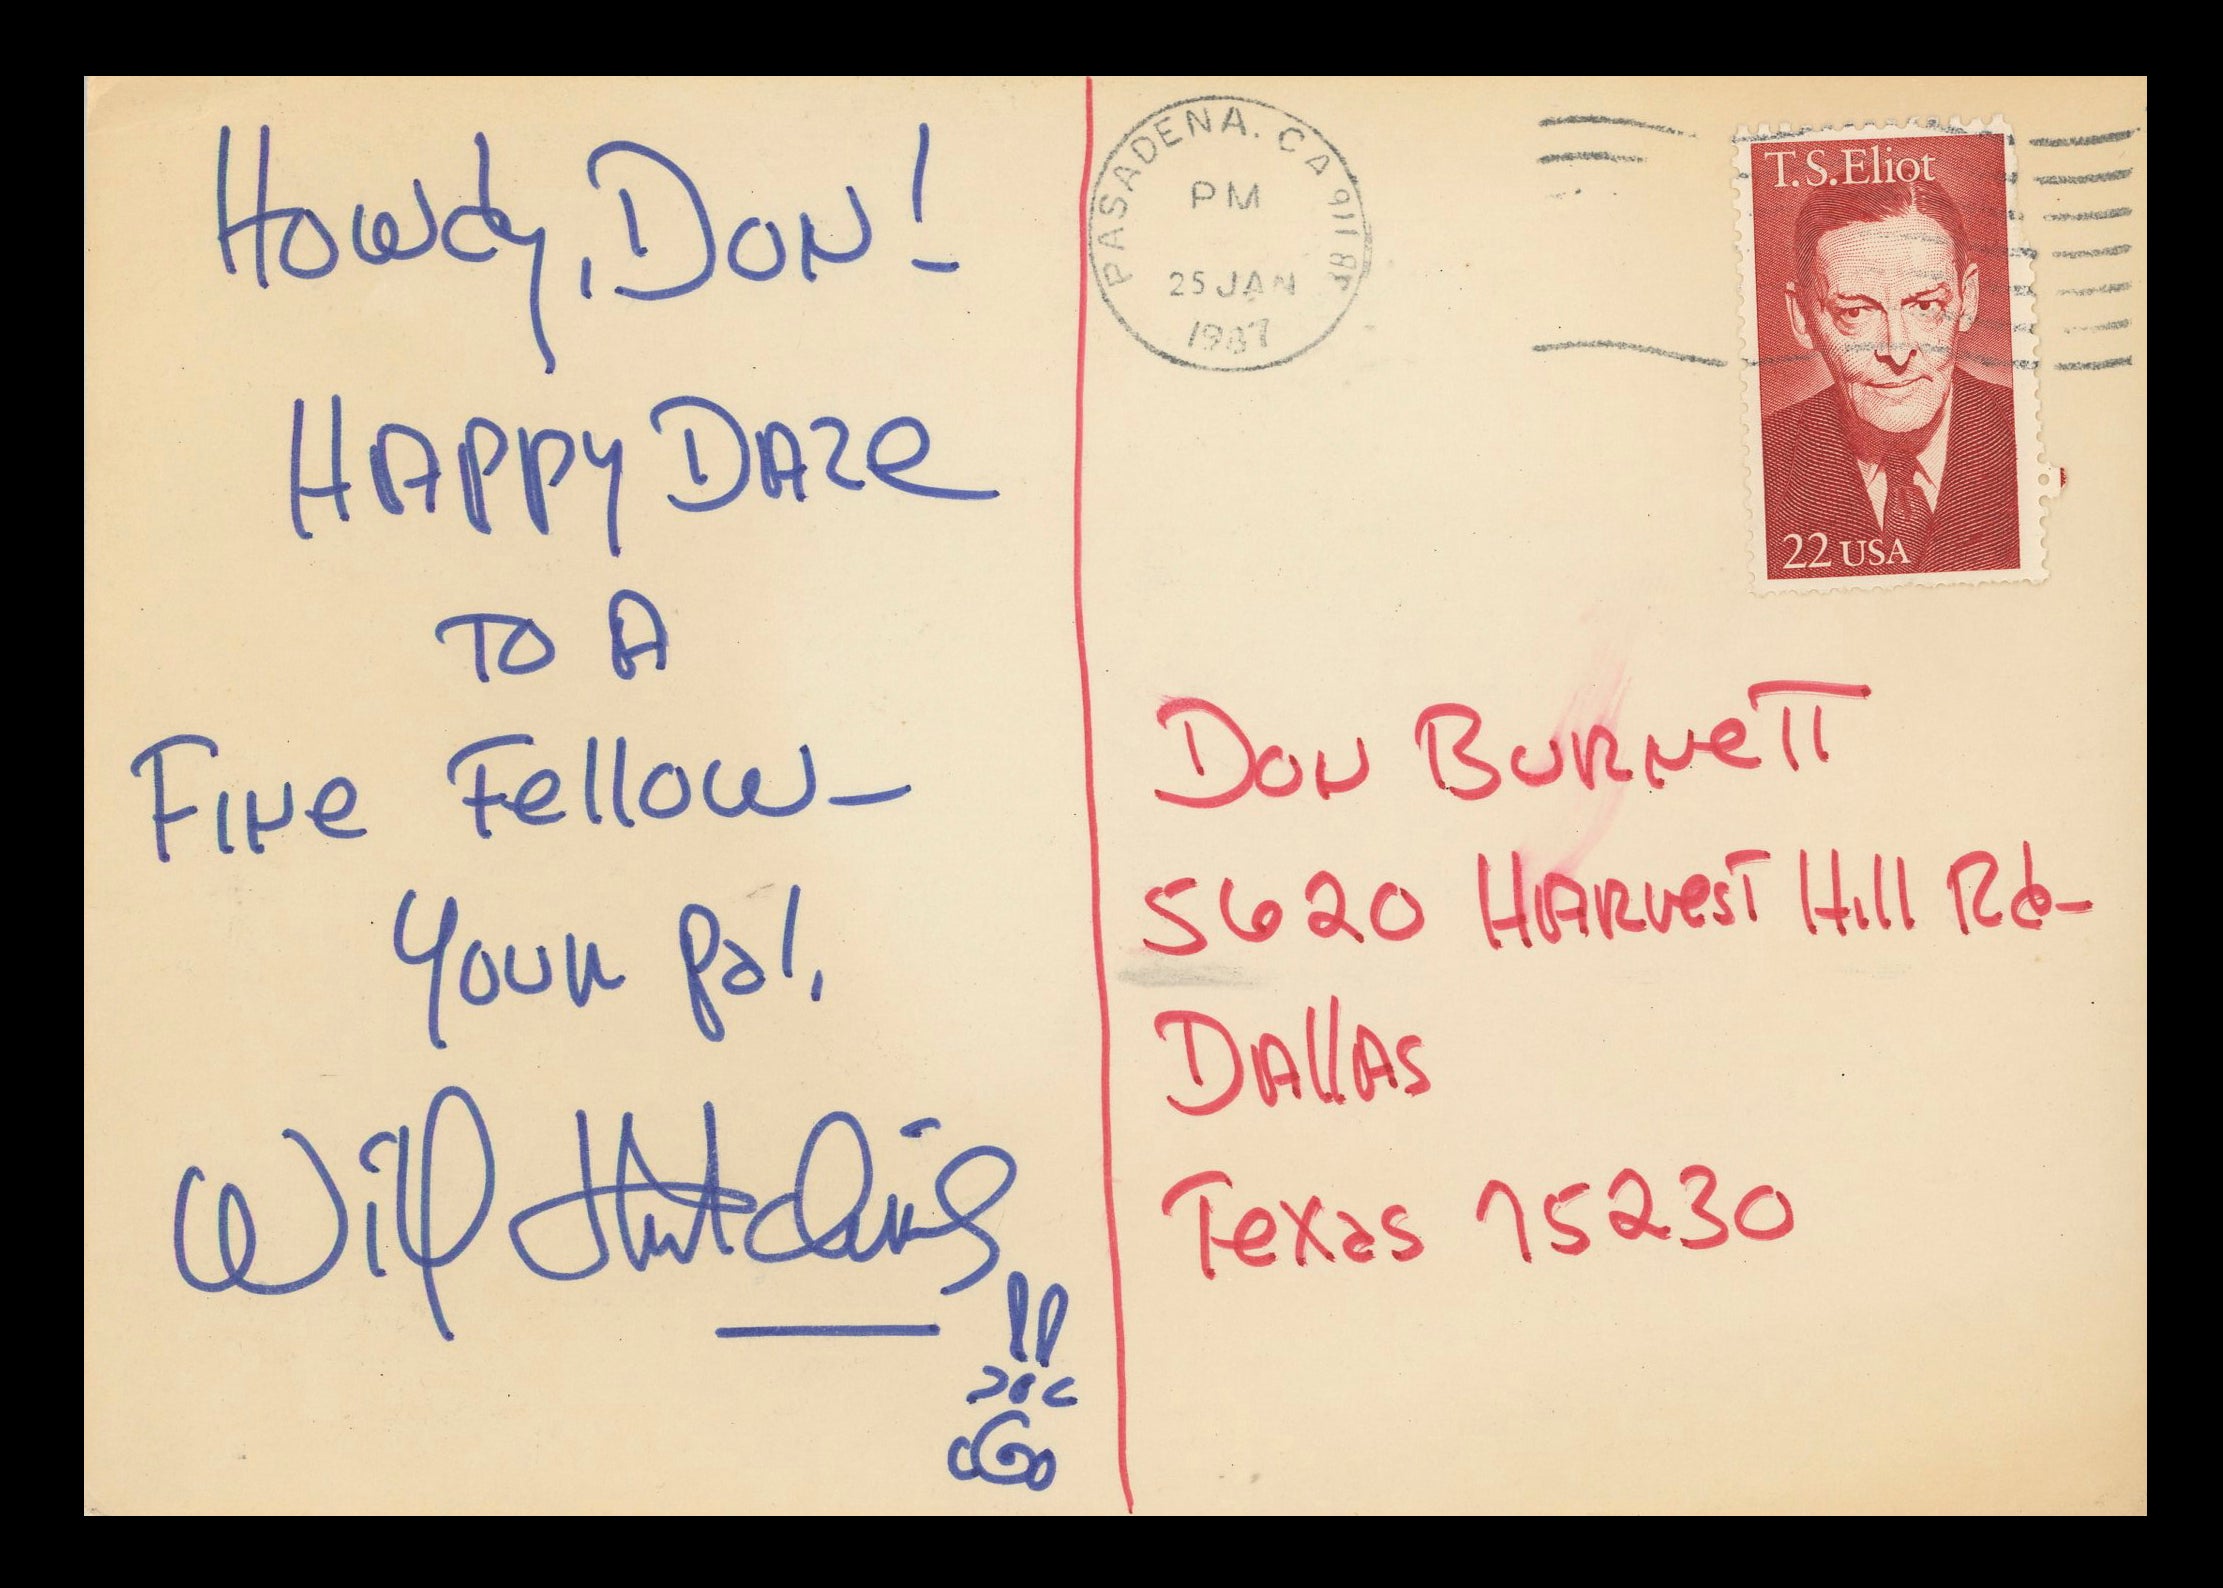 Howdy, Don!
Happy Daze
to a
Fine Fellow—
Your pal,
Will Hutchins
PASADENA, CA 911
PM
25 JAN
1987
T.S.Eliot
22 USA
Don Burnett
5620 Harvest Hill Rd—
Dallas
Texas 75230